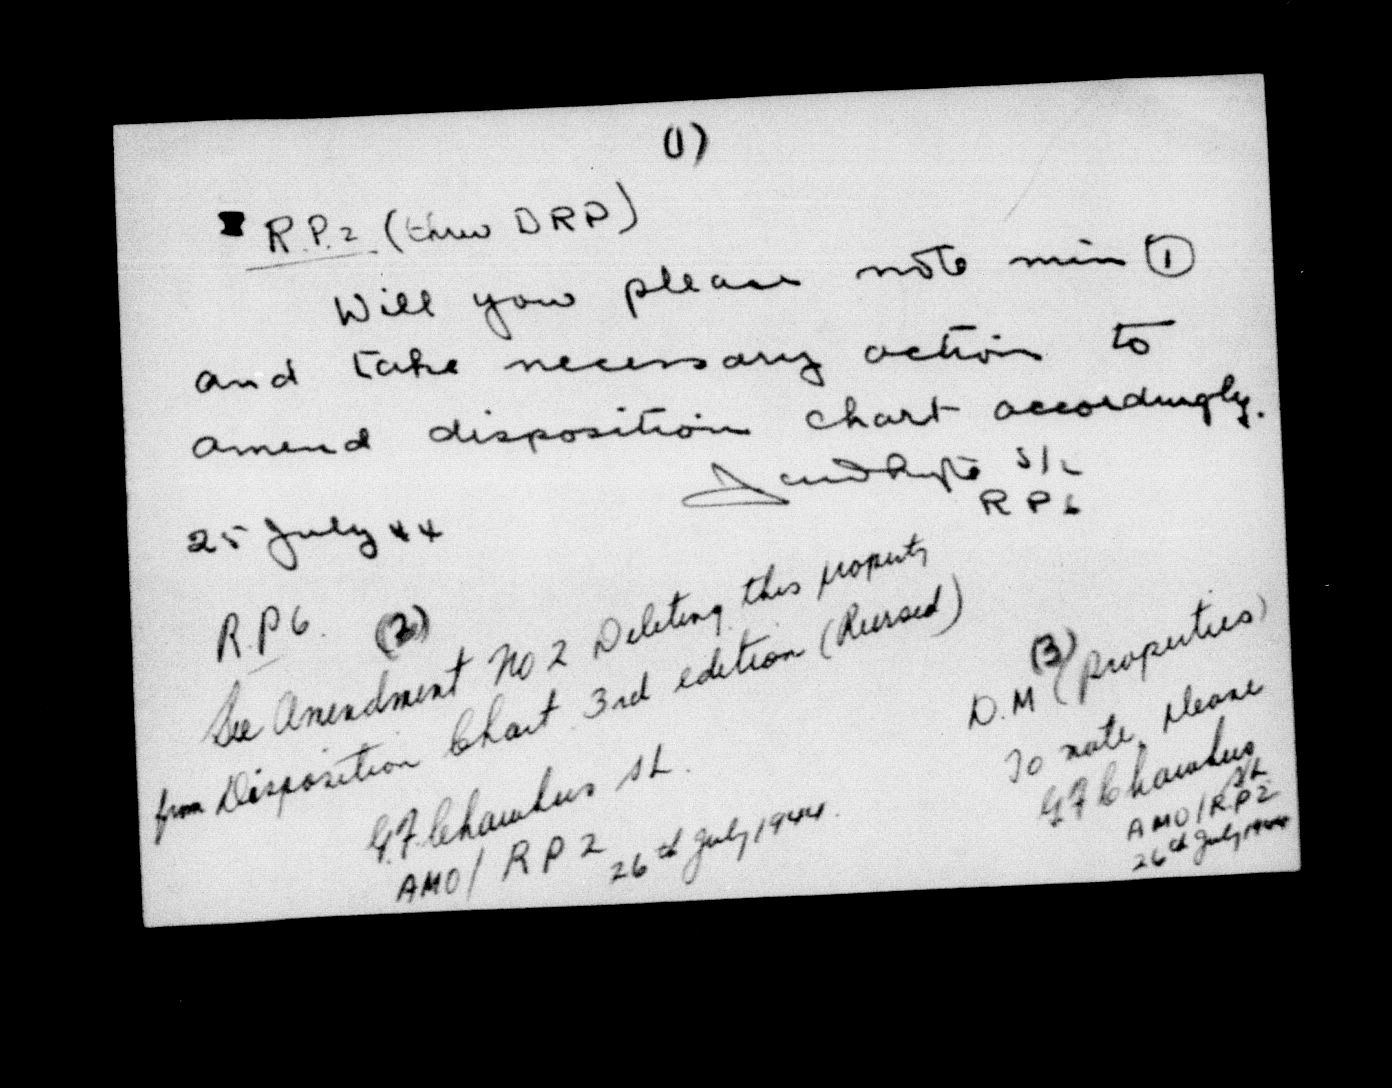 (1)
R.P.2 (thru DRP)
Will you please note min ①
and take necessary action to
amend disposition chart accordingly.
S/L
RP6
25 July 44
R.P6. (2)
See Amendment No 2 Deleting this property
from Disposition Chart 3rd edition (Revised)
G.F. SL.
AMO/RP2 26th July 1944.
(3)
D.M (Properties)
To note please
G F
S/L
AMO/RP2
26th July 1944